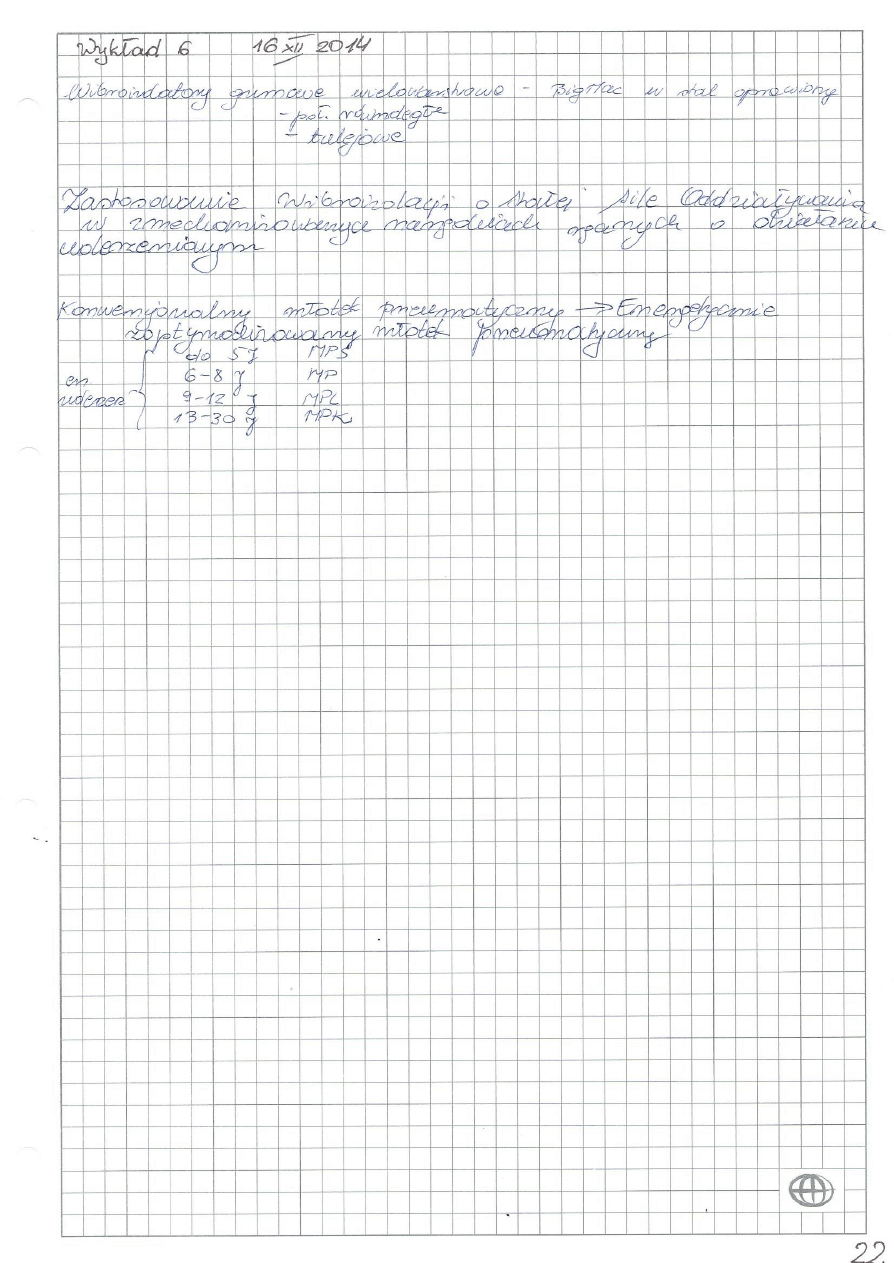 Wykład 6 16 XII 2014
Wibroizolatory gumowe wielowarstwowe - BigMac w stal oprawiony
- poł. równoległe
- tulejowe
Zastosowanie Wibroizolacji o stałej sile Oddziaływania
w zmechanizowanych narzędziach ręcznych o działaniu
uderzeniowym
Konwencjonalny młotek pneumatyczny → Energetycznie
zoptymalizowany młotek pneumatyczny
do 5J MPS
en 6-8 J MP
uderzeń 9-12 J MPL
13-30 J MPK
22.